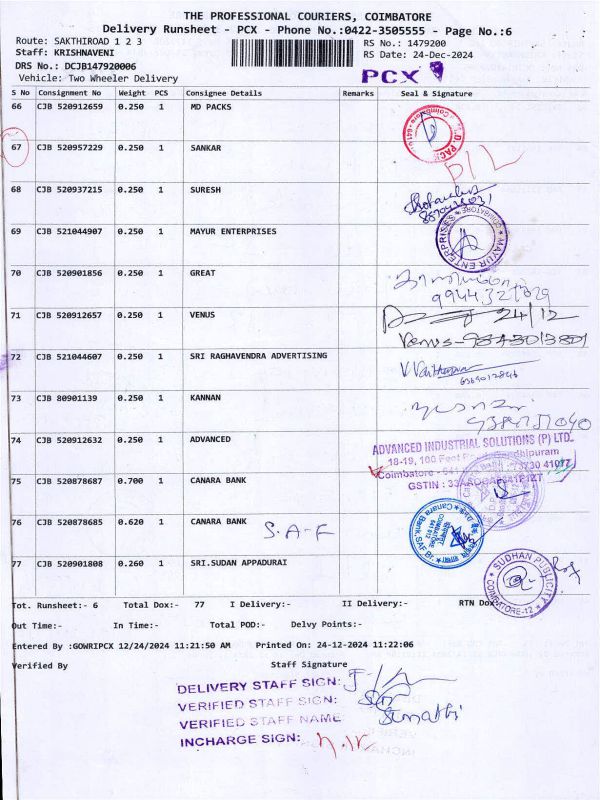 THE PROFESSIONAL COURIERS, COIMBATORE
Delivery Runsheet - PCX - Phone No.:0422-3505555 - Page No.:6
Route: SAKTHIROAD 1 2 3 RS No.: 1479200
Staff: KRISHNAVENI RS Date: 24-Dec-2024
DRS No.: DCJB147920006
Vehicle: Two Wheeler Delivery PCX
S No Consignment No Weight PCS Consignee Details Remarks Seal & Signature
66 CJB 520912659 0.250 1 MD PACKS
67 CJB 520957229 0.250 1 SANKAR D/L
68 CJB 520937215 0.250 1 SURESH
69 CJB 521044907 0.250 1 MAYUR ENTERPRISES MAYUR ENTERPRISES COIMBATORE
70 CJB 520901856 0.250 1 GREAT
71 CJB 520912657 0.250 1 VENUS 24/12
Venus-
72 CJB 521044607 0.250 1 SRI RAGHAVENDRA ADVERTISING
73 CJB 80901139 0.250 1 KANNAN
74 CJB 520912632 0.250 1 ADVANCED
ADVANCED INDUSTRIAL SOLUTIONS (P) LTD.
18-19, 100 Feet Road, Gandhipuram
Coimbatore - 641
GSTIN :
75 CJB 520878687 0.700 1 CANARA BANK
76 CJB 520878685 0.620 1 CANARA BANK S.A-F Canara Bank, SAF Br.
77 CJB 520901808 0.260 1 SRI.SUDAN APPADURAI SUDHAN PUBLICITY COIMBATORE-12
Tot. Runsheet:- 6 Total Dox:- 77 I Delivery:- II Delivery:- RTN Dox
Out Time:- In Time:- Total POD:- Delvy Points:-
Entered By :GOWRIPCX 12/24/2024 11:21:50 AM Printed On: 24-12-2024 11:22:06
Verified By Staff Signature
DELIVERY STAFF SIGN:
VERIFIED STAFF SIGN:
VERIFIED STAFF NAME Sumathi
INCHARGE SIGN: